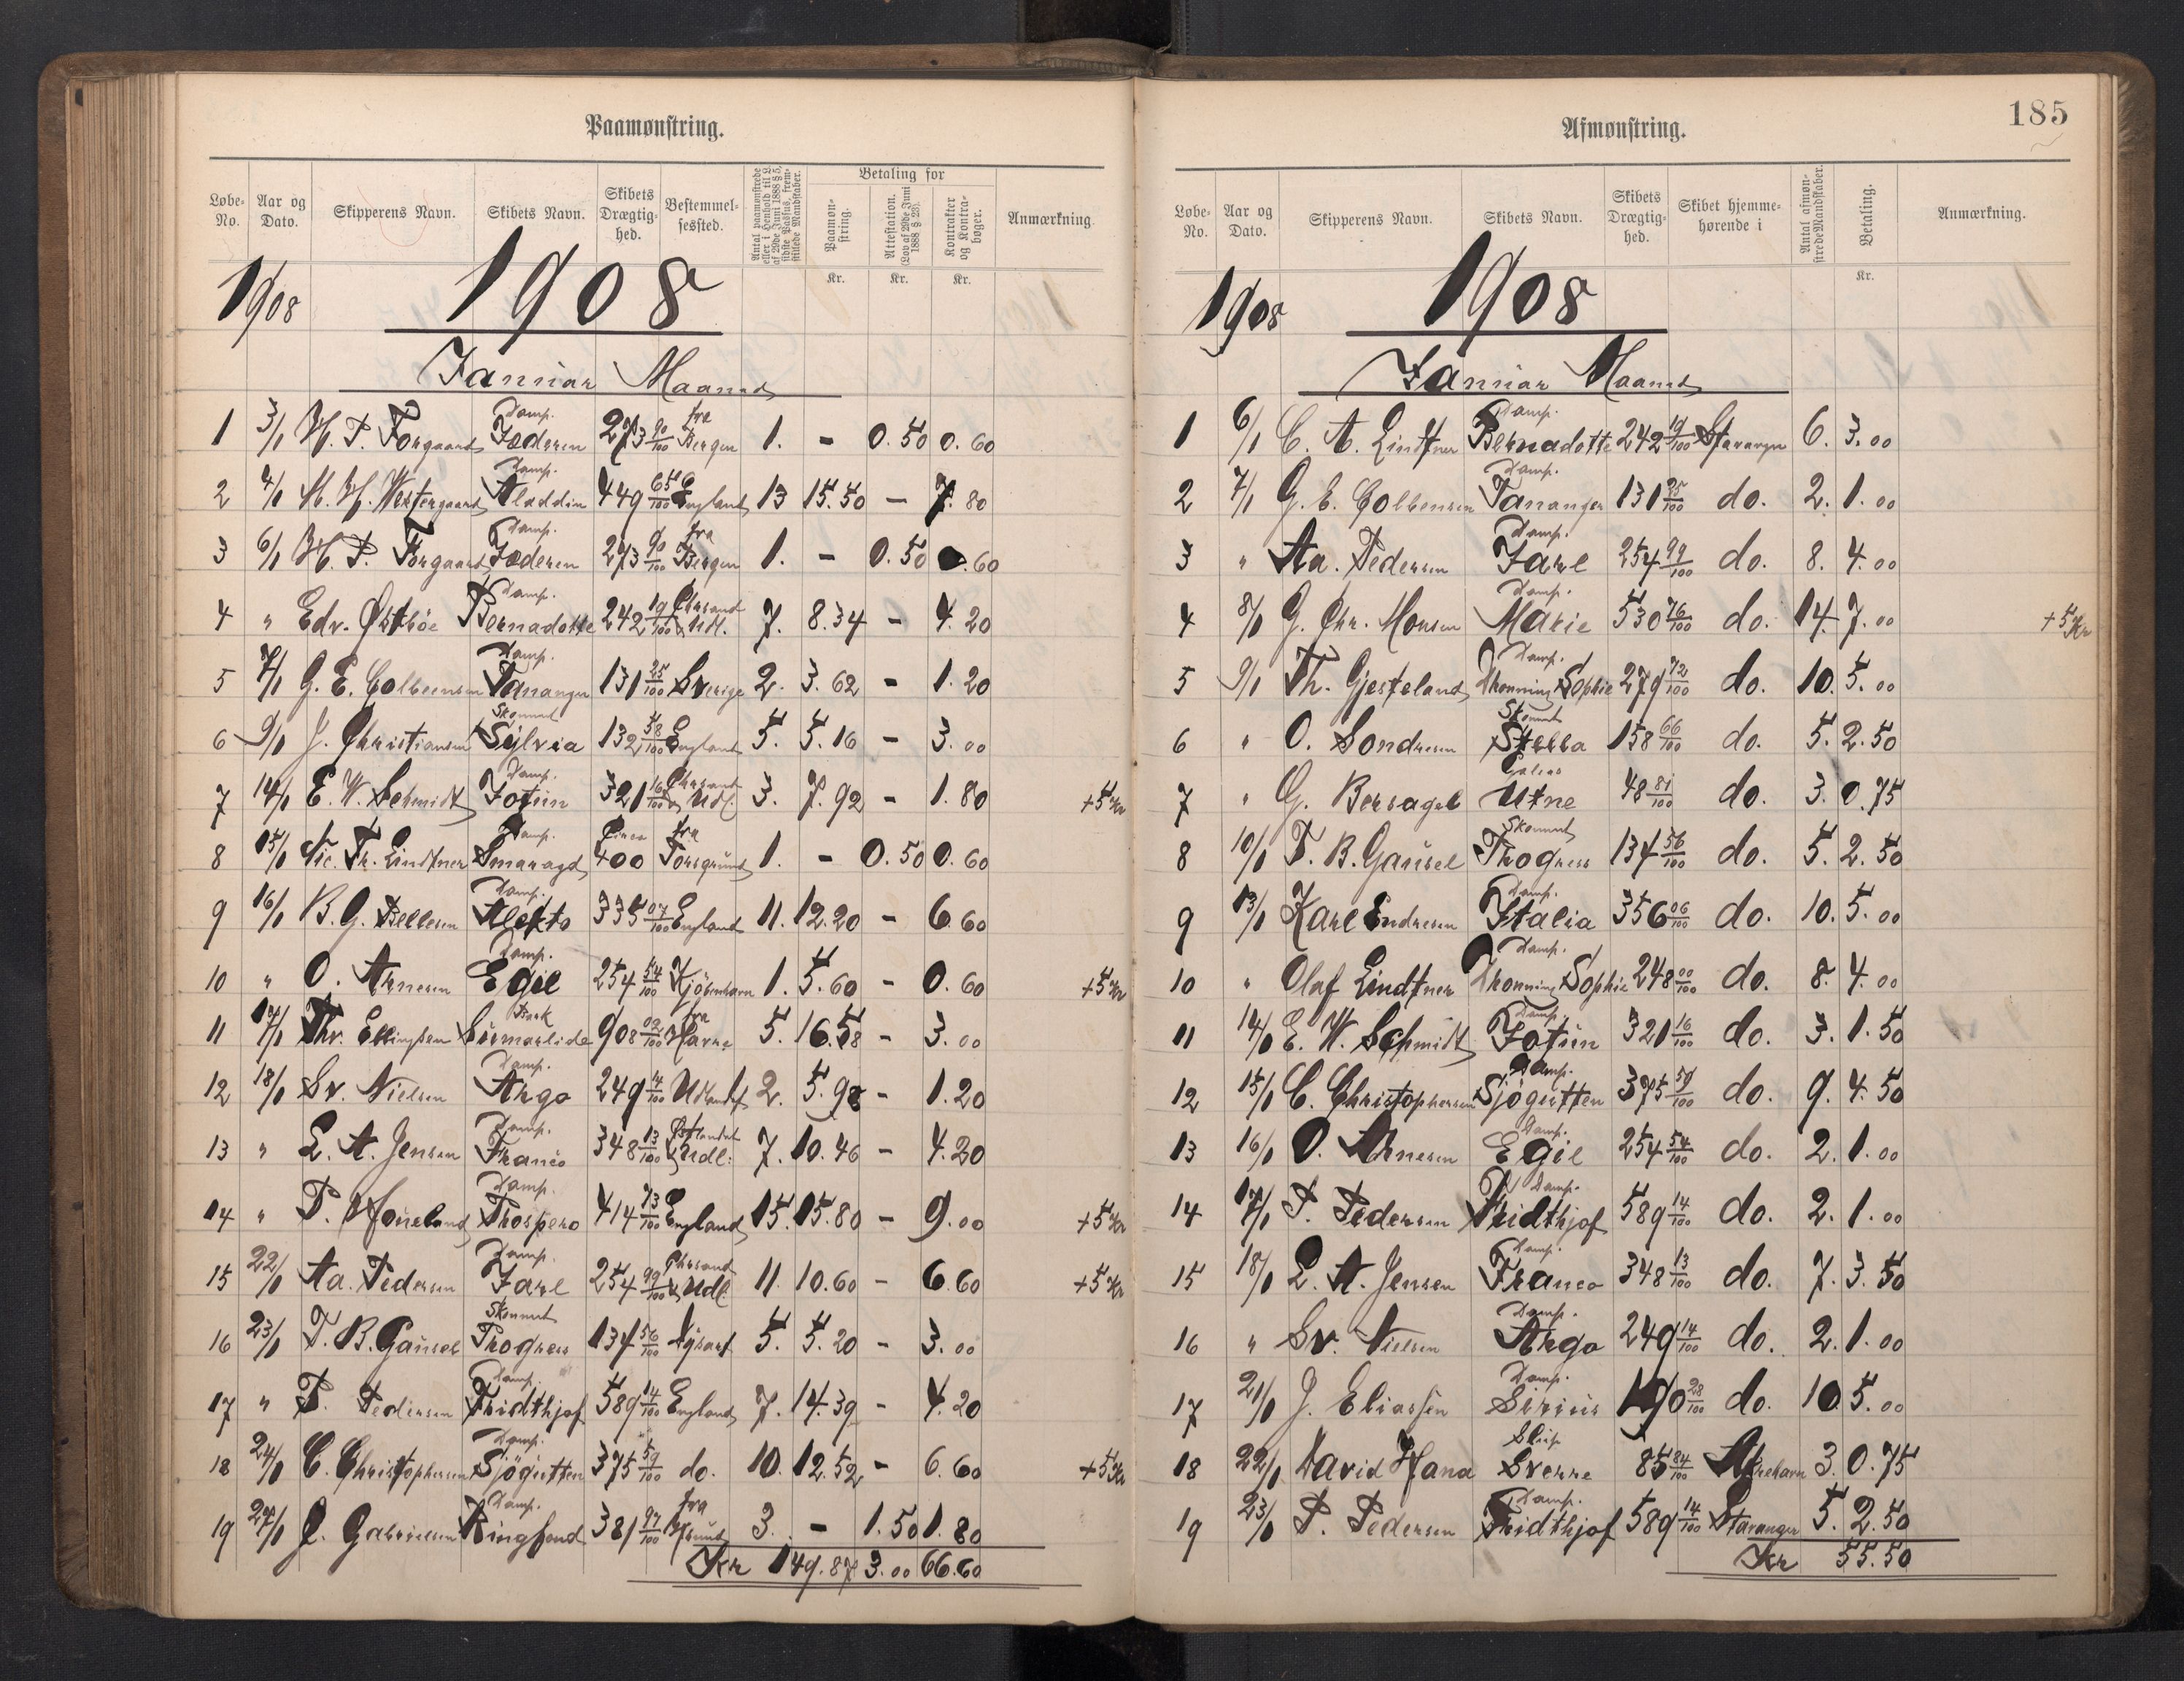 Paamønstring.
Løbe-No. Aar og Dato. Skipperens Navn. Skibets Navn. Skibets Drægtighed. Bestemmelsessted. Antal paamønstrede eller i Henhold til L. af 29de Juni 1888 § 5, sidste Passus, fremstillede Mandskaber. Betaling for Paamønstring. Attestation. (Lov af 29de Juni 1888 § 23). Kontrakter og Kontrabøger. Anmærkning.
Kr. Kr. Kr.
1908 1908
Januar Maaned
1 3/1 H. P. Torgaard Damp. Jæderen 273 90/100 fra Bergen 1. - 0.50 0.60
2 4/1 M. H. Westergaard Damp. Aladdin 449 65/100 England 13 15.50 - 7.80
3 6/1 H. P. Torgaard Damp. Jæderen 273 90/100 fra Bergen 1. - 0.50 0.60
4 " Edv. Østbøe Damp. Bernadotte 242 19/100 Chrsand & Udl. 7. 8.34 - 4.20
5 7/1 G. E. Colbensen Damp. Tananger 131 25/100 Sverige 2. 3.62 - 1.20
6 9/1 J. Christiansen Skonnert Sylvia 132 58/100 England 5. 5.16 - 3.00
7 14/1 E. W. Schmidt Damp. Jotun 321 16/100 Chrsand & Udl. 3. 7.92 - 1.80 +5 Kr
8 15/1 Nic. Fr. Lindtner Damp. Smaragd Circa 400 fra Porsgrund 1. - 0.50 0.60
9 16/1 B. G. Bellesen Damp. Alekto 335 07/100 England 11. 12.20 - 6.60
10 " O. Arnesen Damp. Egil 254 54/100 Kjöbenhavn 1. 5.60 - 0.60 +5 Kr
11 17/1 Thr. Ellingsen Bark Sörmarlide 908 02/100 fra Havre 5. 16.58 - 3.00
12 18/1 Sv. Nielsen Damp. Argo 249 14/100 Udlandet 2. 5.98 - 1.20
13 " L. A. Jensen Damp. Franco 348 13/100 Østlandet & Udl. 7. 10.46 - 4.20
14 " P. Houeland Damp. Prospero 414 73/100 England 15. 15.80 - 9.00 +5 Kr
15 22/1 Aa. Pedersen Damp. Jarl 254 99/100 Chrsand & Udl. 11. 10.60 - 6.60 +5 Kr
16 23/1 T. B. Gausel Skonnert Progress 134 56/100 Dysart 5. 5.20 - 3.00
17 " P. Pedersen Damp. Fridthjof 589 14/100 England 7. 14.39 - 4.20
18 24/1 C. Christophersen Damp. Sjögutten 375 59/100 do. 10. 12.52 - 6.60 +5 Kr
19 27/1 J. Gabrielsen Damp. Ringfond 381 97/100 fra 3. - 1.50 1.80
Kr 149.87 3.00 66.60
Afmønstring. 185
Løbe-No. Aar og Dato. Skipperens Navn. Skibets Navn. Skibets Drægtighed. Skibet hjemmehørende i Antal afmønstrede Mandskaber. Betaling. Anmærkning.
Kr.
1908 1908
Januar Maaned
1 6/1 C. A. Lindtner Damp. Bernadotte 242 19/100 Stavanger 6. 3.00
2 7/1 G. E. Colbensen Damp. Tananger 131 25/100 do. 2. 1.00
3 " Aa. Pedersen Damp. Jarl 254 99/100 do. 8. 4.00
4 8/1 G. Chr. Monsen Damp. Marie 530 76/100 do. 14. 7.00 +5 Kr
5 9/1 Th. Gjesteland Damp. Dronning Sophie 279 72/100 do. 10. 5.00
6 " O. Sondresen Skonnert Stella 158 66/100 do. 5. 2.50
7 " G. Bersagel Galeas Utne 48 81/100 do. 3. 0.75
8 10/1 T. B. Gausel Skonnert Progress 134 56/100 do. 5. 2.50
9 13/1 Karl Endresen Damp. Italia 356 06/100 do. 10. 5.00
10 " Olaf Lindtner Damp. Dronning Sophie 248 00/100 do. 8. 4.00
11 14/1 E. W. Schmidt Damp. Jotun 321 16/100 do. 3. 1.50
12 15/1 C. Christophersen Damp. Sjögutten 375 59/100 do. 9. 4.50
13 16/1 O. Arnesen Damp. Egil 254 54/100 do. 2. 1.00
14 17/1 P. Pedersen Damp. Fridthjof 589 14/100 do. 2. 1.00
15 18/1 L. A. Jensen Damp. Franco 348 13/100 do. 7. 3.50
16 " Sv. Nielsen Damp. Argo 249 14/100 do. 2. 1.00
17 21/1 J. Eliassen Damp. Sirius 190 28/100 do. 10. 5.00
18 22/1 David Hana Slup Sverre 85 84/100 Aakrehavn 3. 0.75
19 23/1 P. Pedersen Damp. Fridthjof 589 14/100 Stavanger 5. 2.50
Kr 55.50